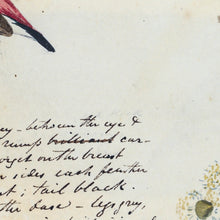 ey - between the eye &
rump brilliant car-
on the breast
sides each feather
; tail black.
the base - legs grey,